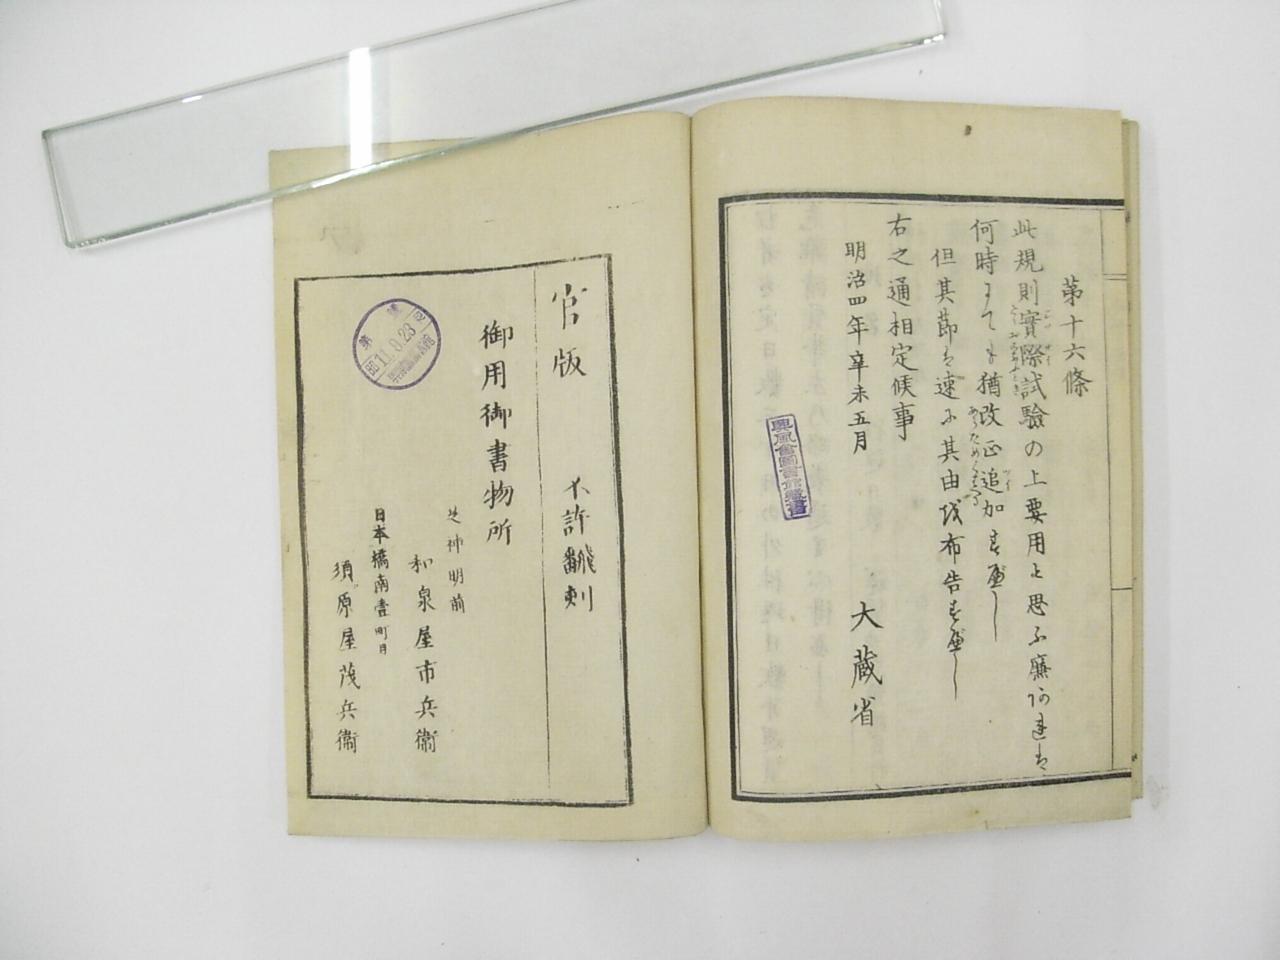 第十六條
此規則實際試驗の上要用と思ふ廉あれは
何時にても猶改正追加すへし
但其節は速に其由を布告すへし
右之通相定候事
明治四年辛未五月
大蔵省
興風會圖書館藏書
官版
不許飜刻
御用御書物所
芝神明前
和泉屋市兵衞
日本橋南壹町目
須原屋茂兵衞
昭11.9.23